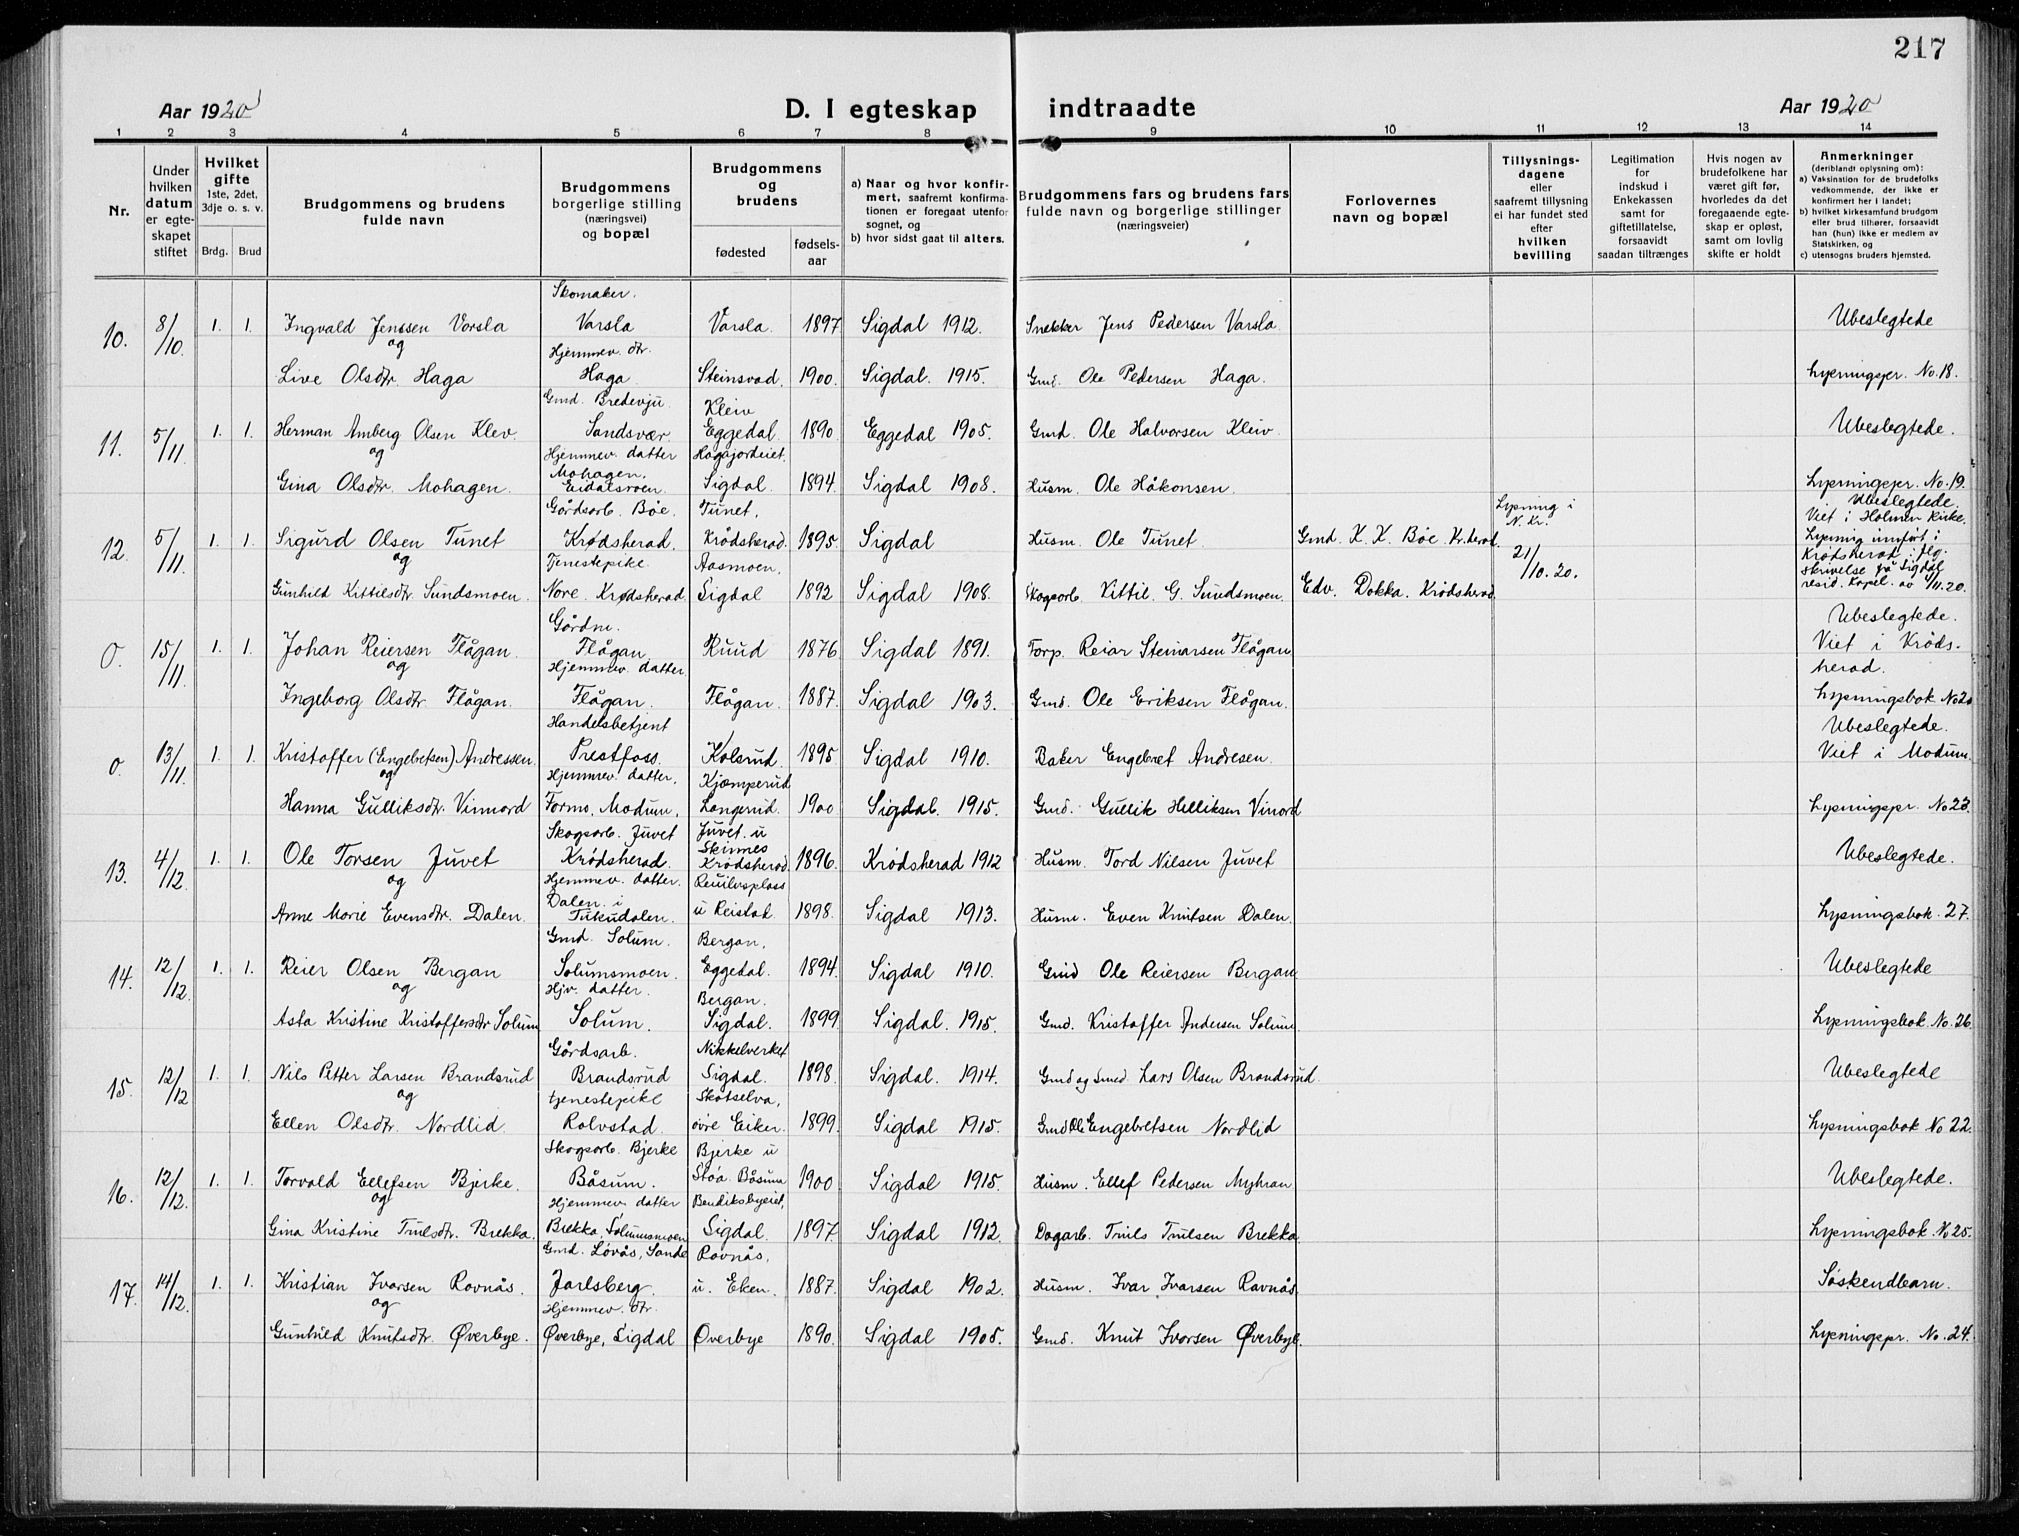 217
Aar 1920
D. I egteskap indtraadte
Aar 1920
1 2 3 4 5 6 7 8 9 10 11 12 13 14
Nr.
Under hvilken datum er egteskapet stiftet
Hvilket gifte 1ste, 2det, 3dje o. s. v.
Brdg. Brud
Brudgommens og brudens fulde navn
Brudgommens borgerlige stilling (næringsvei) og bopæl
Brudgommens og brudens
fødested
fødselsaar
a) Naar og hvor konfirmert, saafremt konfirmationen er foregaat utenfor sognet, og
b) hvor sidst gaat til alters.
Brudgommens fars og brudens fars fulde navn og borgerlige stillinger (næringsveier)
Forlovernes navn og bopæl
Tillysningsdagene eller saafremt tillysning ei har fundet sted efter hvilken bevilling
Legitimation for indskud i Enkekassen samt for giftetillatelse, forsaavidt saadan tiltrænges
Hvis nogen av brudefolkene har været gift før, hvorledes da det foregaaende egteskap er opløst, samt om lovlig skifte er holdt
Anmerkninger (deriblandt oplysning om):
a) Vaksination for de brudefolks vedkommende, der ikke er konfirmert her i landet;
b) hvilket kirkesamfund brudgom eller brud tilhører, forsaavidt han (hun) ikke er medlem av Statskirken, og
c) utensogns bruders hjemsted.
10. 8/10 1. 1. Ingvald Jenssen Vorsla Skomaker. Varsla Varsla. 1897 Sigdal 1912. Snekker Jens Pedersen Varsla Ubeslegtede
og
Live Olsdtr. Haga Hjemmev. dtr. Haga Steinsvad. 1900. Sigdal. 1915. Gmd. Ole Pedersen Haga. Lysningspr. No. 18.
11. 5/11. 1. 1. Herman Amberg Olsen Klev. Gmd. Bredevju. Sandsvær. Kleiv Eggedal. 1890. Eggedal 1905. Gmd. Ole Halvorsen Kleiv. Ubeslegtede.
og
Gina Olsdtr. Mohagen. Hjemmev. datter Mohagen. Eidalsroen. Hagajordeiet. Sigdal. 1894. Sigdal 1908. Husm. Ole Håkonsen. Lysningspr. No. 19.
12. 5/11. 1. 1. Sigurd Olsen Tunet Gårdsarb. Bøe. Krødsherad. Tunet. Krødsherad. 1895. Sigdal Husm. Ole Tunet Gmd. K. K. Bøe. Kr.herad. Lysning i N. Kr. 21/10. 20. Ubeslegtede. Viet i Holmen Kirke.
og
Gunhild Kittilsdtr. Sundsmoen. Tjenestepike. Nore. Krødsherad Aasmoen. Sigdal 1892 Sigdal 1908. Skogsarb. Kittil. G. Sundsmoen. Edv. Dokka. Krødsherad. Lysning utført i Krødsherad iflg. skrivelse fra Sigdal resid. Kapel. av 1/11. 20.
0. 15/11 1. 1. Johan Reiersen Flågan. Gårdm. Flågan. Ruud 1876 Sigdal 1891. Forp. Reiar Steinarsen Flågan Ubeslegtede. Viet i Krødsherad.
og
Ingeborg Olsdtr. Flågan. Hjemmev. datter. Flågan. Flågan. 1887. Sigdal 1903. Gmd. Ole Eriksen Flågan. Lysningsbok No 20
0. 13/11. 1. 1. Kristoffer (Engebretsen) Andressen. Handelsbetjent Prestfoss. Kolsrud. 1895 Sigdal 1910. Baker Engebret Andresen. Ubeslegtede. Viet i Modum.
og
Hanna Gulliksdtr. Vinnord Hjemmev. datter. Formo, Modum. Kjæmperud Langerud. 1900 Sigdal. 1915. Gmd. Gullik Helliksen Vinord Lysningspr. No 23.
13. 4/12. 1. 1. Ole Torsen Juvet Skogsarb. Juvet Krødsherad. Juvet. u Skinnes Krødsherad. 1896. Krødsherad 1912 Husm. Tord Nilsen Juvet Ubeslegtede.
og
Anne Marie Evensdtr. Dalen. Hjemmev. datter. Dalen. i u Reistad. 1898. Sigdal 1913. Husm. Even Knutsen Dalen. Lysningsbok. 27.
14. 12/12. 1. 1. Reier Olsen Bergan Gmd. Solum. Solumsmoen. Bergan. Eggedal. 1894. Sigdal 1910. Gmd Ole Reiersen Bergan Ubeslegtede
og
Asta Kristine Kristoffersdtr Solum Hjv. datter. Solum. Bergan. Sigdal. 1899 Sigdal. 1915. Gmd. Kristoffer Andersen Solum Lysningsbok. No. 26.
15. 12/12 1. 1. Nils Petter Larsen Brandsrud Gårdsarb. Brandsrud Nikkelverket Sigdal. 1898. Sigdal. 1914. Gmd og Smed Lars Olsen Brandsrud. Ubeslegtede
og
Ellen Olsdtr. Nordlid. tjenestepike Rolvstad. Skotselva, øvre Eiker. 1899. Sigdal 1915. Gmd Ole Engebretsen Nordlid Lysningsbok No 22.
16. 12/12. 1. 1. Torvald Ellefsen Bjerke. Skogsarb. Bjerke Båsum. Bjerke u Støa. Båsum 1900 Sigdal 1915. Husm. Ellef Pedersen Myhran Ubeslegtede.
og
Gina Kristine Trulsdtr. Brekka. Hjemmev. datter Brekka, Solumsmoen Bendiksbyeiet, Sigdal. 1897. Sigdal 1912. Dagarb. Truls Trulsen Brekka Lysningsbok. No 25.
17. 14/12. 1. 1. Kristian Ivarsen Ravnås. Gmd. Løvås, Sande Jarlsberg. Ravnås, u. Eken. 1887. Sigdal 1902. Husm. Ivar Ivarsen Ravnås. Søskendbarn.
og
Gunhild Knutsdtr. Øverbye. Hjemmev. dtr. Øverbye, Sigdal Øverbye 1890. Sigdal 1905. Gmd. Knut Ivarsen Øverbye. Lysningspr. No. 24.